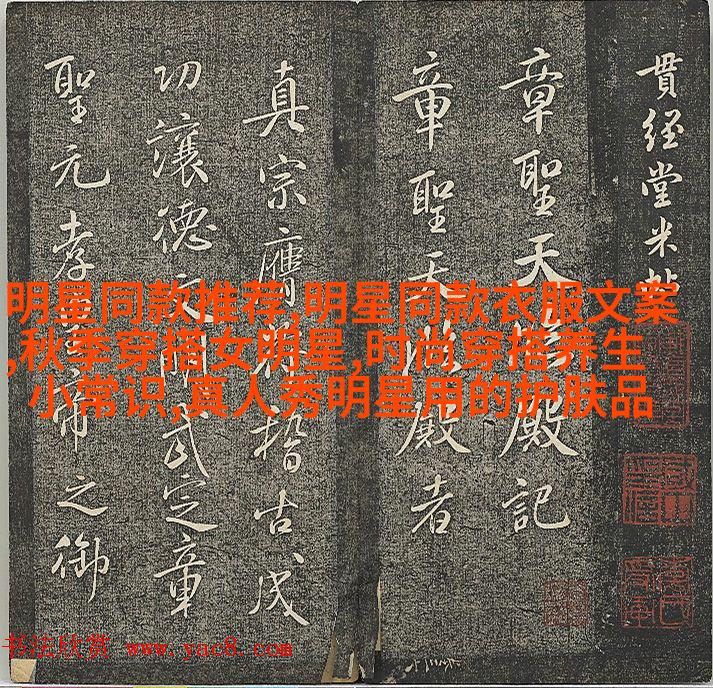 貫經堂米帖
章聖天臨殿記
章聖天臨殿者
真宗膺符稽古成
功讓德文明武定章
聖元孝皇帝之御
明星同款推荐,明星同款衣服文案
,秋季穿搭女明星,时尚穿搭养生
小常识,真人秀明星用的护肤品
书法欣赏 www.yac8.com